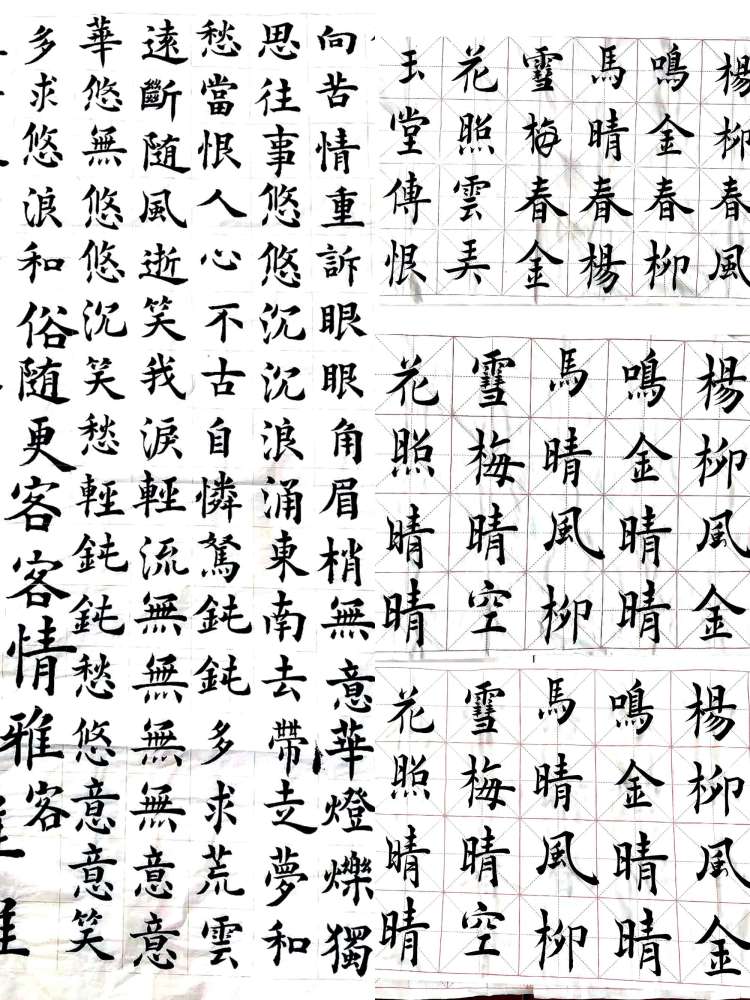 楊柳春風
鳴金春柳
馬晴春楊
雪梅春金
花照雲弄
玉堂傳恨
楊柳風金
鳴金晴晴
馬晴風柳
雪梅晴空
花照晴晴
楊柳風金
鳴金晴晴
馬晴風柳
雪梅晴空
花照晴晴
向苦情重訴眼眼角眉梢無意華燈爍獨
思往事悠悠沉沉浪涌東南去帶走夢和
愁當恨人心不古自憐駑鈍鈍多求荒雲
遠斷随風逝笑我淚輕流無無無無意意
華悠無悠悠沉笑愁輕鈍鈍愁悠意意笑
多求悠浪和俗随更客客情雅客